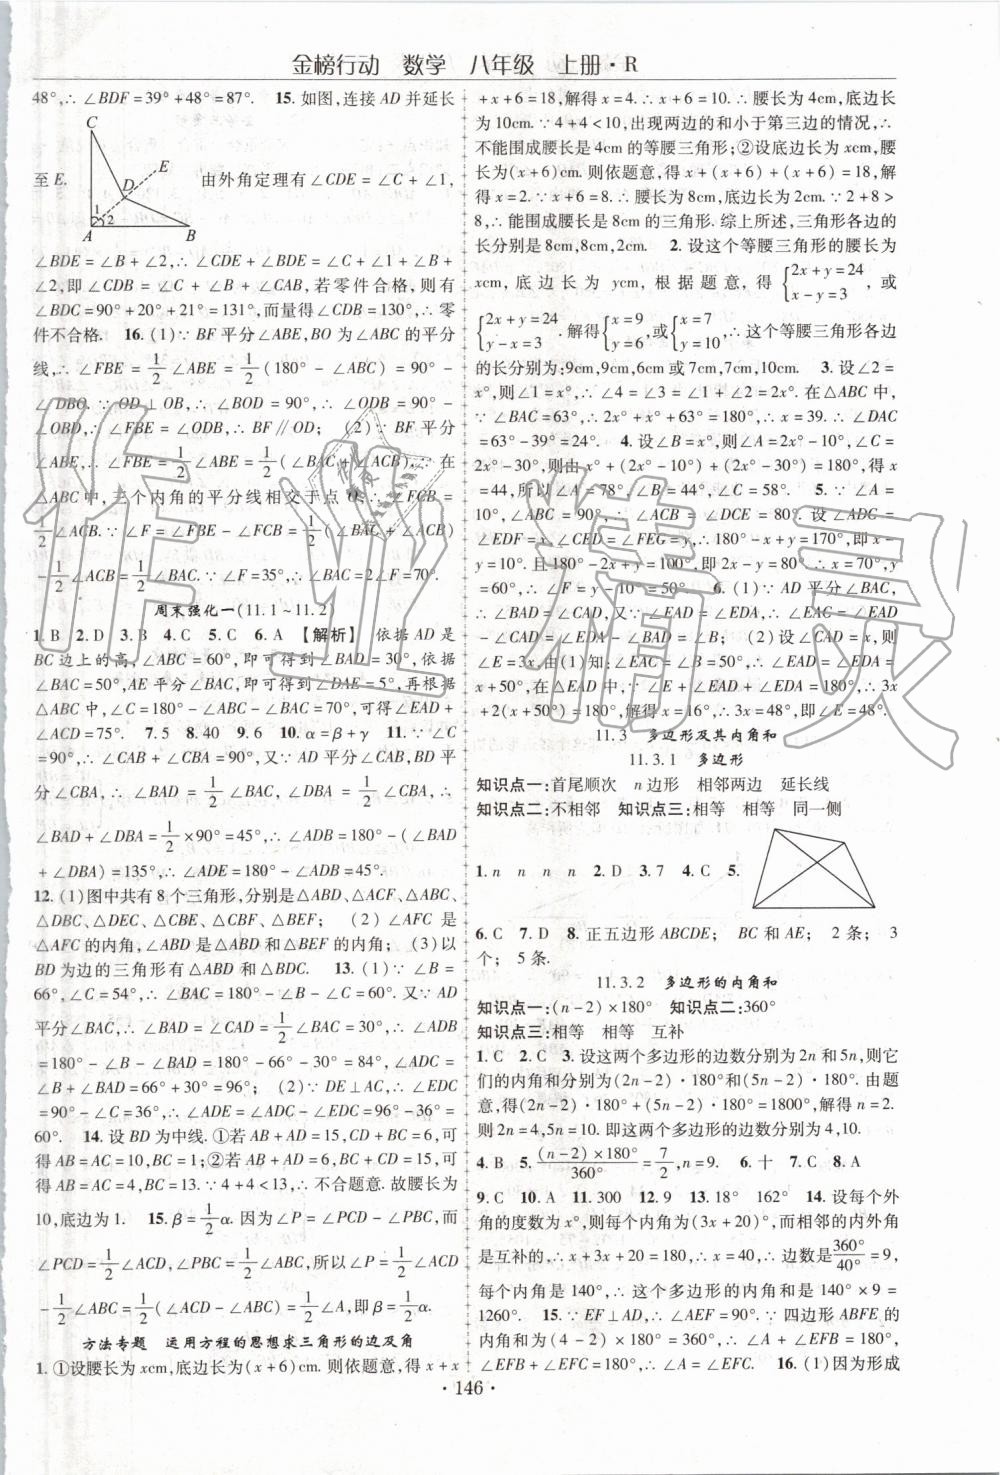 金榜行动 数学 八年级 上册·R
48°,∴∠BDF=39°+48°=87°. 15. 如图,连接 AD 并延长
C
E
D
1
2
A
B
至 E. 由外角定理有∠CDE=∠C+∠1,
∠BDE=∠B+∠2,∴∠CDE+∠BDE=∠C+∠1+∠B+
∠2,即∠CDB=∠C+∠B+∠CAB,若零件合格,则有
∠BDC=90°+20°+21°=131°,而量得∠BDC=130°,∴零
件不合格. 16. (1)∵BF 平分∠ABE,BO 为∠ABC 的平分
线,∴∠FBE=1/2∠ABE=1/2(180°-∠ABC)=90°-
∠DBO.∵OD⊥OB,∴∠BOD=90°,∴∠ODB=90°-
∠OBD,∴∠FBE=∠ODB,∴BF∥OD; (2)∵BF 平分
∠ABE,∴∠FBE=1/2∠ABE=1/2(∠BAC+∠ACB),∵在
△ABC 中,三个内角的平分线相交于点 ,∴∠FCB=
1/2∠ACB.∵∠F=∠FBE-∠FCB=1/2(∠BAC+∠ACB)
-1/2∠ACB=1/2∠BAC.∵∠F=35°,∴∠BAC=2∠F=70°.
周末强化一(11.1~11.2)
1. B 2. D 3. B 4. C 5. C 6. A 【解析】 依据 AD 是
BC 边上的高,∠ABC=60°,即可得到∠BAD=30°,依据
∠BAC=50°,AE 平分∠BAC,即可得到∠DAE=5°,再根据
△ABC 中,∠C=180°-∠ABC-∠BAC=70°,可得∠EAD+
∠ACD=75°. 7. 5 8. 40 9. 6 10. α=β+γ 11. ∵∠C
=90°,∴∠CAB+∠CBA=90°.又∵AD、BD 平分∠CAB、
∠CBA,∴∠BAD=1/2∠BAC,∠DBA=1/2∠ABC,∴
∠BAD+∠DBA=1/2×90°=45°,∴∠ADB=180°-(∠BAD
+∠DBA)=135°,∴∠ADE=180°-∠BDA=45°.
12. (1)图中共有 8 个三角形,分别是△ABD、△ACF、△ABC、
△DBC、△DEC、△CBE、△CBF、△BEF; (2)∠AFC 是
△AFC 的内角,∠ABD 是△ABD 和△BEF 的内角; (3)以
BD 为边的三角形有△ABD 和△BDC. 13. (1)∵∠B=
66°,∠C=54°,∴∠BAC=180°-∠B-∠C=60°.又∵AD
平分∠BAC,∴∠BAD=∠CAD=1/2∠BAC=30°,∴∠ADB
=180°-∠B-∠BAD=180°-66°-30°=84°,∠ADC=
∠B+∠BAD=66°+30°=96°; (2)∵DE⊥AC,∴∠EDC
=90°-∠C=36°,∴∠ADE=∠ADC-∠EDC=96°-36°=
60°. 14. 设 BD 为中线.①若 AB+AD=15,CD+BC=6,可
得 AB=AC=10,BC=1;②若 AB+AD=6,CD+BC=15,可
得 AB=AC=4,BC=13.∵4+4<13,∴不合题意.故腰长为
10,底边为 1. 15. β=1/2α. 因为∠P=∠PCD-∠PBC,而
∠PCD=1/2∠ACD,∠PBC=1/2∠ABC,所以∠P=1/2∠ACD
-1/2∠ABC=1/2(∠ACD-∠ABC)=1/2∠A,即β=1/2α.
方法专题 运用方程的思想求三角形的边及角
1. ①设腰长为 xcm,底边长为(x+6)cm. 则依题意,得 x+x
+x+6=18,解得 x=4.∴x+6=10.∴腰长为 4cm,底边长
为 10cm.∵4+4<10,出现两边的和小于第三边的情况,∴
不能围成腰长是 4cm 的等腰三角形;②设底边长为 xcm,腰
长为(x+6)cm. 则依题意,得 x+(x+6)+(x+6)=18,解
得 x=2.∴x+6=8.∴腰长为 8cm,底边长为 2cm.∵2+8>
8,∴能围成腰长是 8cm 的三角形.综上所述,三角形各边的
长分别是 8cm,8cm,2cm. 2. 设这个等腰三角形的腰长为
xcm,底边长为 ycm,根据题意,得{2x+y=24 x-y=3,或
{2x+y=24 y-x=3.解得{x=9 y=6,或{x=7 y=10,∴这个等腰三角形各边
的长分别为:9cm,9cm,6cm 或 7cm,7cm,10cm. 3. 设∠2=
x°,则∠1=x°,∴∠4=∠3=∠1+∠2=2x°.在△ABC 中,
∵∠BAC=63°,∴2x°+x°+63°=180°,∴x=39.∴∠DAC
=63°-39°=24°. 4. 设∠B=x°,则∠A=2x°-10°,∠C=
2x°-30°,则由 x°+(2x°-10°)+(2x°-30°)=180°,得 x
=44,所以∠A=78°,∠B=44°,∠C=58°. 5. ∵∠A=
10°,∠ABC=90°,∴∠ACB=∠DCE=80°. 设∠ADG=
∠EDF=x,∠CED=∠FEG=y,∴180°-x+y=170°,即 x-
y=10°.且 180°-2y+x=100°,即 2y-x=80°,∴x=70°,y
=60°,∴∠F=180°-70°-60°=50°. 6. (1)∵AD 平分∠BAC,
∴∠BAD=∠CAD,又∵∠EAD=∠EDA,∴∠EAC=∠EAD
-∠CAD=∠EDA-∠BAD=∠B; (2)设∠CAD=x,则
∠E=3x.由(1)知:∠EAC=∠B=50°,∴∠EAD=∠EDA=
x+50°,在△EAD 中,∵∠E+∠EAD+∠EDA=180°,∴3x
+2(x+50°)=180°,解得 x=16°,∴3x=48°,即∠E=48°.
11.3 多边形及其内角和
11.3.1 多边形
知识点一:首尾顺次 n 边形 相邻两边 延长线
知识点二:不相邻 知识点三:相等 相等 同一侧
1. n n n n 2. D 3. 7 4. C 5.
6. C 7. D 8. 正五边形 ABCDE; BC 和 AE; 2 条; 3
个; 5 条.
11.3.2 多边形的内角和
知识点一:(n-2)×180° 知识点二:360°
知识点三:相等 相等 互补
1. C 2. C 3. 设这两个多边形的边数分别为 2n 和 5n,则它
们的内角和分别为(2n-2)·180°和(5n-2)·180°. 由题
意,得(2n-2)·180°+(5n-2)·180°=1800°,解得 n=2.
则 2n=4,5n=10. 即这两个多边形的边数分别为 4,10.
4. B 5. (n-2)×180°/360°=7/2,n=9. 6. 十 7. C 8. A
9. C 10. A 11. 300 12. 9 13. 18° 162° 14. 设每个外
角的度数为 x°,则每个内角为(3x+20)°,而相邻的内外角
是互补的,∴x+3x+20=180,∴x=40,∴边数是360°/40°=9,
每个内角是 140°,∴这个多边形的内角和是 140°×9=
1260°. 15. ∵EF⊥AD,∴∠AEF=90°.∵四边形 ABFE 的
内角和为(4-2)×180°=360°,∴∠A+∠B=180°,
∠EFB+∠EFC=180°,∴∠A=∠EFC. 16. (1)因为形成
·146·
作业精灵